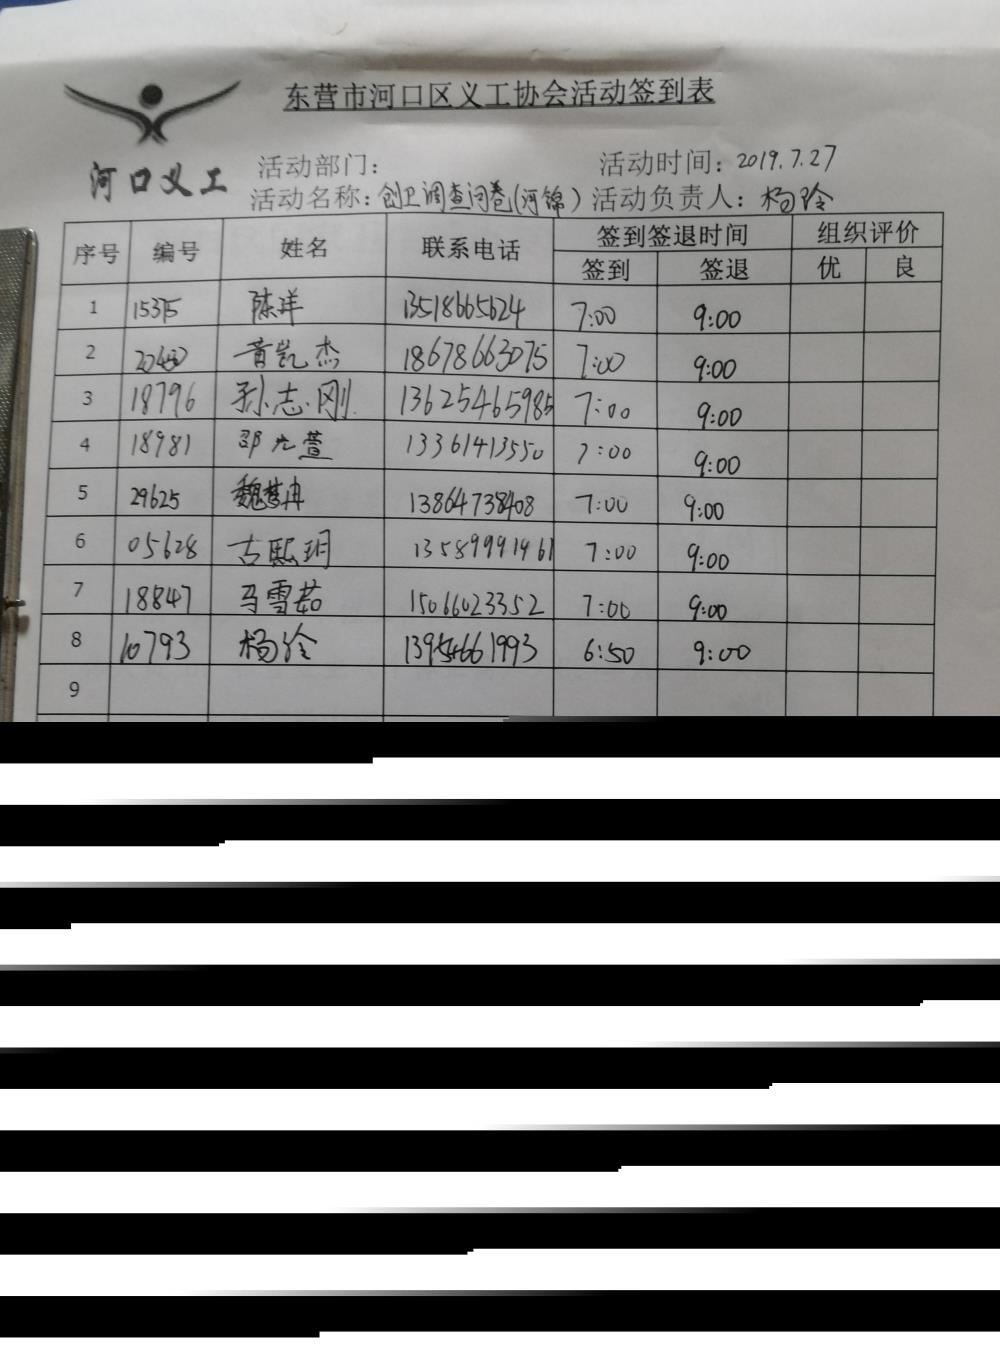 东营市河口区义工协会活动签到表
河口义工
活动部门： 活动时间：2019.7.27
活动名称：创卫调查问卷(河锦) 活动负责人：杨玲
序号 编号 姓名 联系电话 签到签退时间 组织评价
签到 签退 优 良
1 15375 陈洋 13518665624 7:00 9:00
2 黄凯杰 18678663075 7:00 9:00
3 18796 孙志刚 13625465985 7:00 9:00
4 18981 邵元萱 13361413550 7:00 9:00
5 29625 13864738408 7:00 9:00
6 05628 古熙玥 13589991961 7:00 9:00
7 18847 马雪茹 15066023352 7:00 9:00
8 10793 杨玲 13954661993 6:50 9:00
9